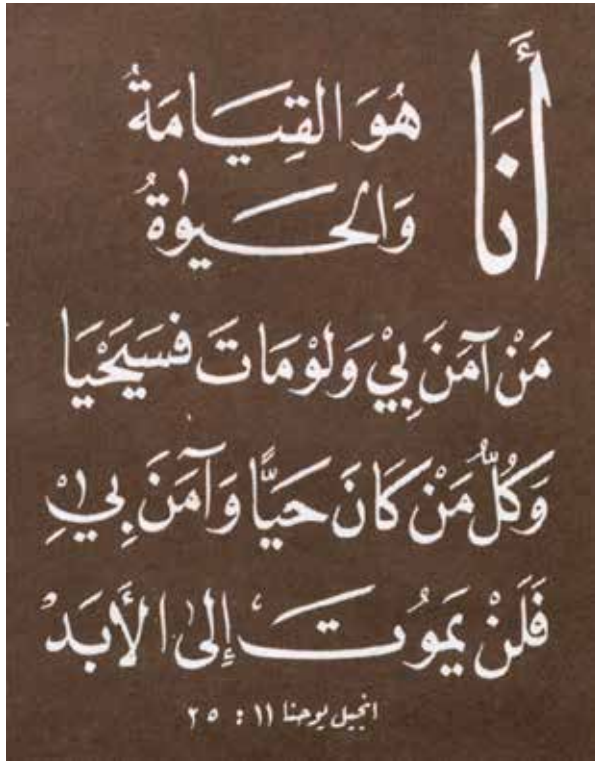 أَنَا هُوَ القِيَامَةُ
وَالحَيٰوةُ
مَنْ آمَنَ بِيْ وَلَوْ مَاتَ فَسَيَحْيَا
وَكُلُّ مَنْ كَانَ حَيًّا وَآمَنَ بِيْ
فَلَنْ يَمُوتَ إِلىٰ الأَبَدْ
انجيل يوحنا ١١ : ٢٥